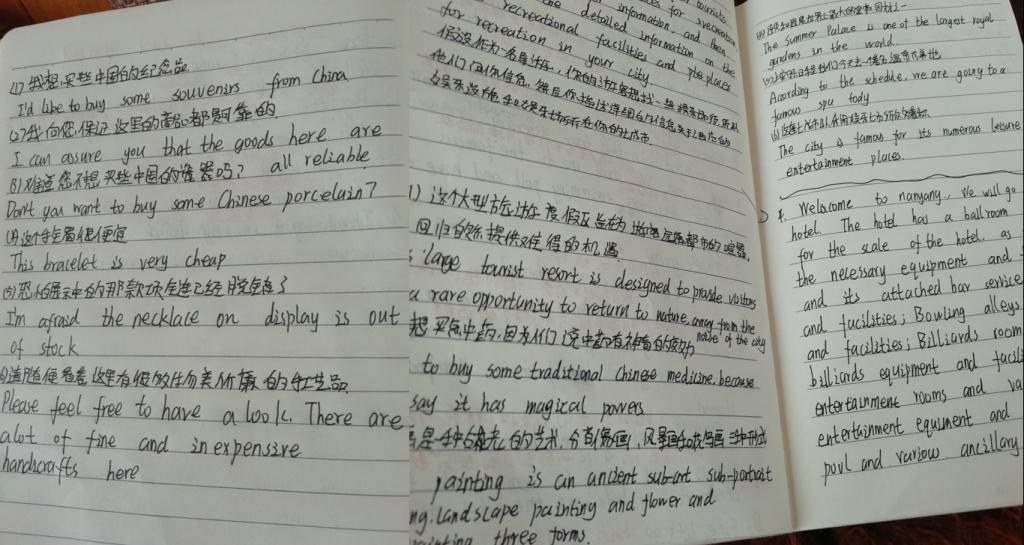 (1) 我想买些中国的纪念品
I'd like to buy some souvenirs from China
(2) 我向您保证这里的商品都是可靠的
I can assure you that the goods here are
all reliable
(3) 难道您不想买些中国的瓷器吗?
Don't you want to buy some Chinese porcelain?
(4) 这个手镯很便宜
This bracelet is very cheap
(5) 恐怕展示中的那款项链已经脱销了
I'm afraid the necklace on display is out
of stock
请随便看看 这里有很多 物美价廉的工艺品
Please feel free to have a look. There are
alot of fine and inexpensive
handicrafts here
tourists
for svereation
information and then
recreational the detailed information on the
for recreation in facilities and pbe places
your city
1) 这个大型旅游度假区 为游客远离都市的喧嚣,
回归自然提供难得的机遇
large tourist resort is designed to provide visitors
a rare opportunity to return to nature, away from the
noise of the city
想买点中药,因为人们说中药有神奇的
to buy some traditional Chinese medicine, because
say it has magical powers
是一种古老的艺术,分肖像画,风景画和花鸟画三种形式
painting is an ancient sub-art sub-portrait
ng, landscape painting and flower and
painting three forms.
The Summer Palace is one of the largest royal
gardens in the world
According to the schedle, we are going to a
famous spu tody
The city is famous for its numerous leisure
entertainment places
I. Welcome to nanyang, We will go
hotel. The hotel has a ballroom
for the scale of the hotel, as
the necessary equipment and
and its attached bar service
and facilities; Bowling alleys
and facilities; Billiards room
billiards equipment and facili
entertainment rooms and va
entertainment equisment and
poul and variow ancillary